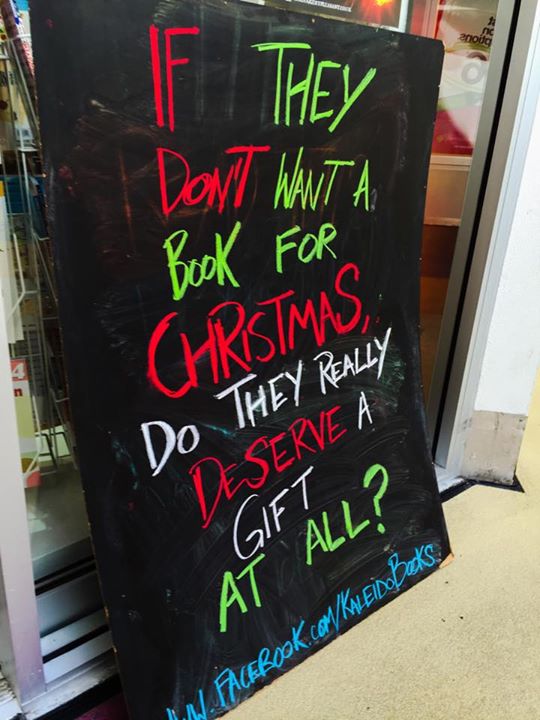 IF THEY
DON'T WANT A
BOOK FOR
CHRISTMAS,
DO THEY REALLY
DESERVE A
GIFT
AT ALL?
WW.FACEBOOK.COM/KALEIDOBOOKS